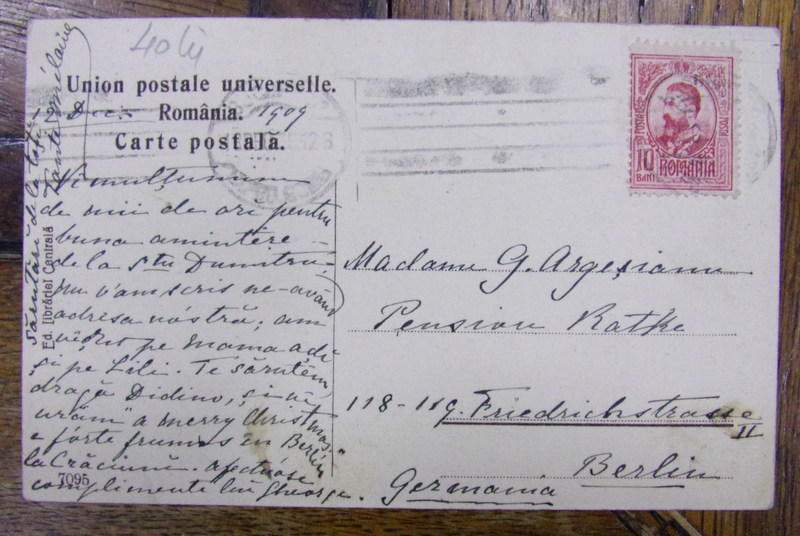 40 lei
Union postale universelle.
România.
Carte postală.
12 Dec. 1909
Vă mulțumim
de mii de ori pentru
buna amintire
de la Stu Dumitru.
nu v'am scris ne-având
adresa vóstră; am
vĕdut pe Mama adĭ
și pe Lili. Te sărutăm,
dragă Didino, și vĕ
urăm "a merry Christmas."
e fórte frumos în Berlin
la Crăciun. afectuóse
complimente lui George.
sărutări de la toți
Tanti
Ed. librăriei Centrală
7095
10 BANI
ROMANIA
Madame G. Argeșianu
Pension Ratke
118-119. Friedrichstrasse
II
Berlin
Germania